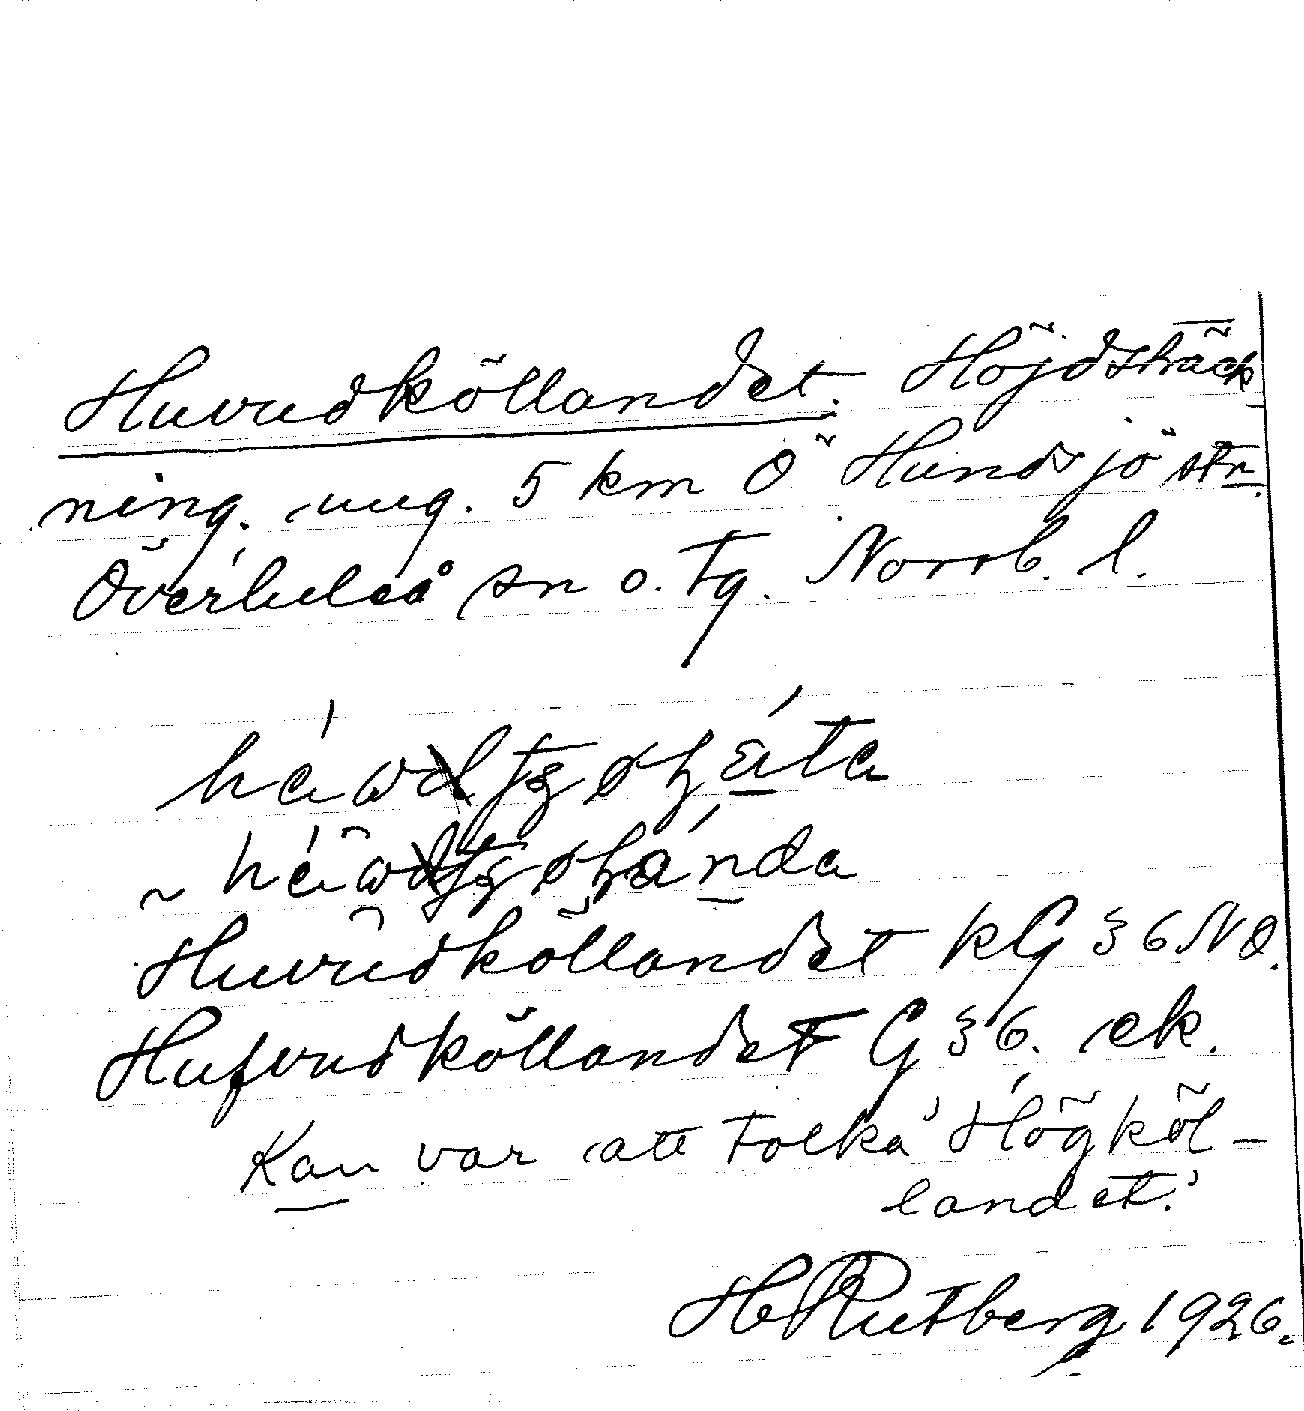 Huvudköllandet. Höjdsträck-
ning. ung. 5 km Ö Hundsjö stn.
Överluleå sn o. tg. Norrb. l.
Huvudköllandet kG § 6 NO.
Hufvudköllandet G § 6. ek.
Kan var att tolka 'Högköl-
landet.'
H Rutberg 1926.